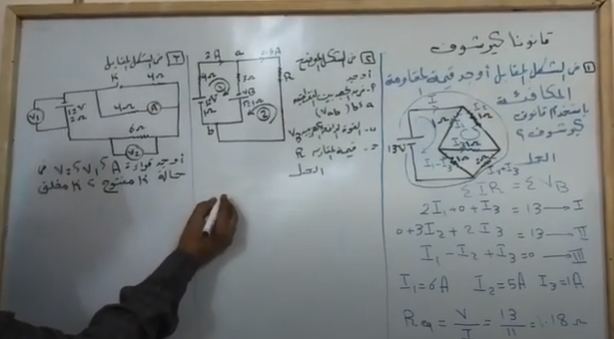 قانونا كيرشوف
١ من الشكل المقابل أوجد قيمة المقاومة
المكافئة
باستخدام قانون
كيرشوف؟
الحل
13V
I
I₁
1Ω
1Ω
1Ω
I₁-I₃
I₂+I₃
ΣIR = ΣV_B
2I₁+0+I₃ = 13 → I
0+3I₂+2I₃ = 13 → II
I₁-I₂+I₃=0 → III
I₁=6A I₂=5A I₃=1A
Req = V/I = 13/11 = 1.18Ω
٢ من الشكل الموضح
أوجد
أ- فرق الجهد بين النقطتين
a, b (Vab)
ب- القوة الدافعة الكهربية V_B
ج- قيمة المقاومة R
الحل
2A
a
R
4Ω
V_B
b
1
2
٣ من الشكل المقابل
K
4Ω
4Ω
A
12V
2Ω
6Ω
V₁
V₂
أوجد قراءة A, V₁, V₂ في
حالة K مفتوح، K مغلق